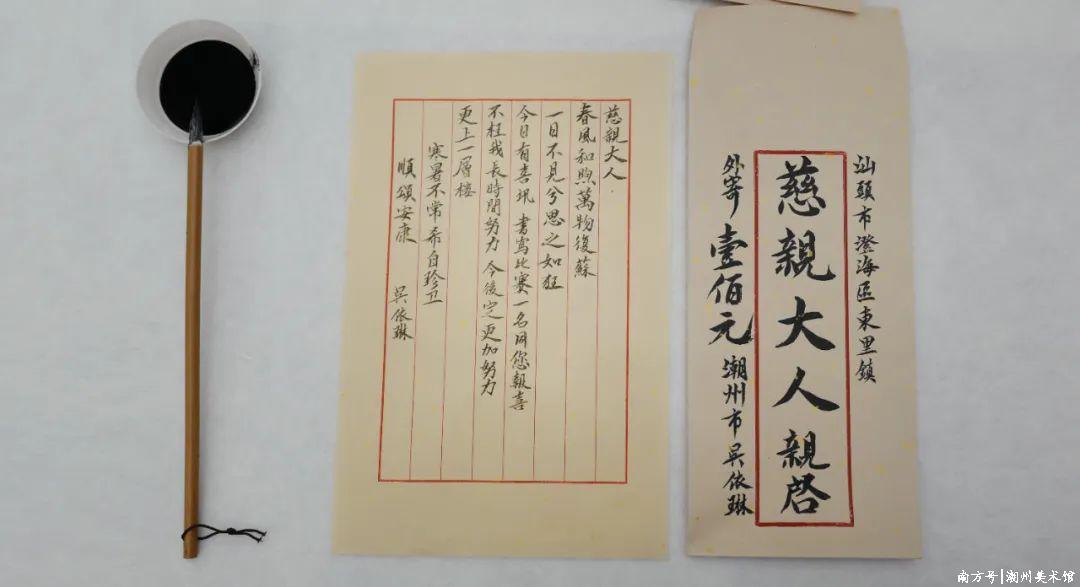 慈親大人
春風和煦萬物復蘇
一日不見兮思之如狂
今日有喜訊 書寫比賽一名网您報喜
不枉我長時間努力 今後定更加努力
更上一層樓
寒暑不常希自珍卫
順頌安康 吳依琳
汕頭市澄海區東里镇
慈親大人親啓
外寄壹佰元潮州市吳依琳
南方号|潮州美术馆